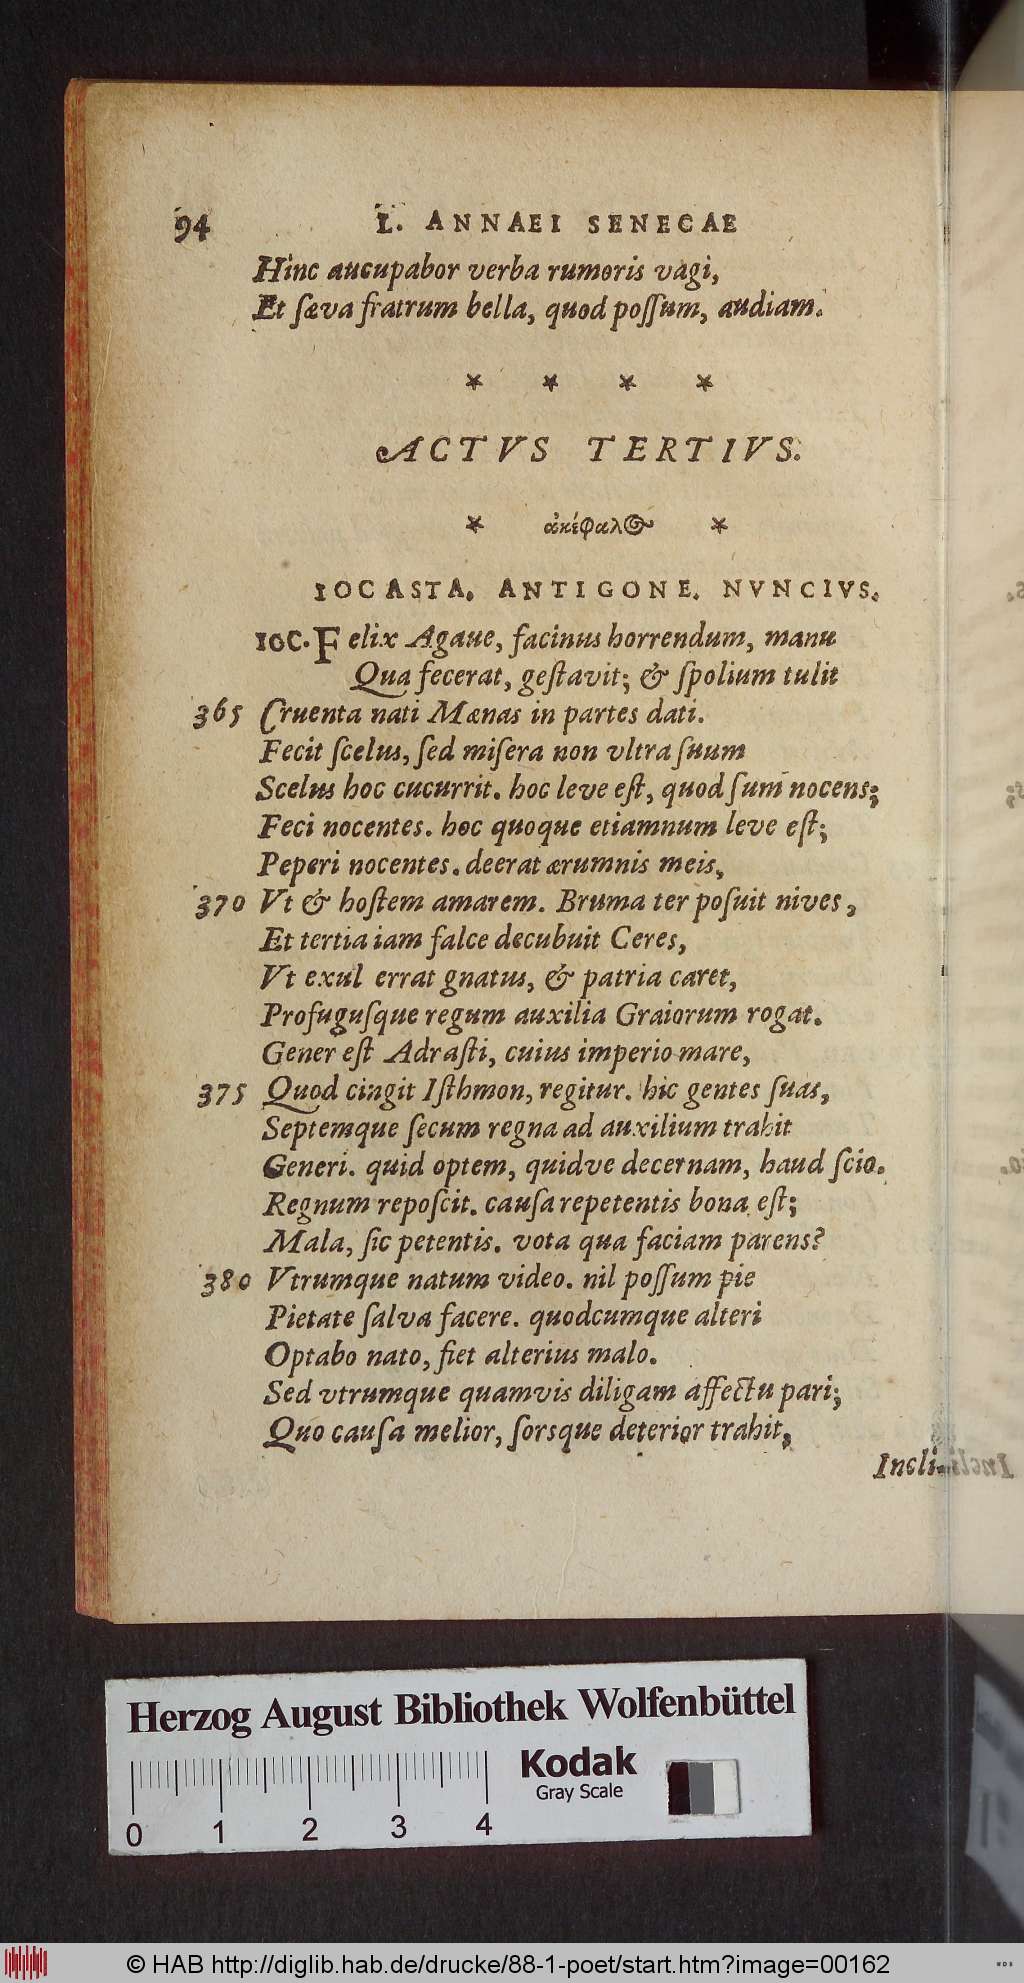 94 L. ANNAEI SENECAE
Hinc aucupabor verba rumoris vagi,
Et ſæva fratrum bella, quod poſſum, audiam.
* * * *
ACTVS TERTIVS.
* ἀκέφαλος *
IOCASTA. ANTIGONE. NVNCIVS.
IOC. Felix Agaue, facinus horrendum, manu
Qua fecerat, geſtavit; & ſpolium tulit
365 Cruenta nati Mænas in partes dati.
Fecit ſcelus, ſed miſera non vltra ſuum
Scelus hoc cucurrit. hoc leve eſt, quod ſum nocens;
Feci nocentes. hoc quoque etiamnum leve eſt;
Peperi nocentes. deerat ærumnis meis,
370 Vt & hoſtem amarem. Bruma ter poſuit nives,
Et tertia iam falce decubuit Ceres,
Vt exul errat gnatus, & patria caret,
Profuguſque regum auxilia Graiorum rogat.
Gener eſt Adraſti, cuius imperio mare,
375 Quod cingit Iſthmon, regitur. hic gentes ſuas,
Septemque ſecum regna ad auxilium trahit
Generi. quid optem, quidve decernam, haud ſcio.
Regnum repoſcit. cauſa repetentis bona eſt;
Mala, ſic petentis. vota qua faciam parens?
380 Vtrumque natum video. nil poſſum pie
Pietate ſalva facere. quodcumque alteri
Optabo nato, fiet alterius malo.
Sed vtrumque quamvis diligam affectu pari;
Quo cauſa melior, ſorsque deterior trahit,
Incli-
Herzog August Bibliothek Wolfenbüttel
Kodak
Gray Scale
0 1 2 3 4
© HAB http://diglib.hab.de/drucke/88-1-poet/start.htm?image=00162